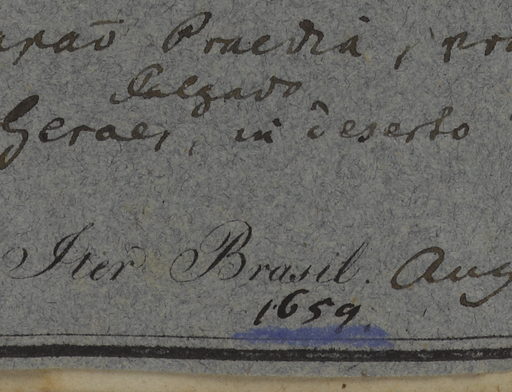 Praedia, pro
Delgado
Geraes, in deserto
Iter Brasil. Aug
1659.